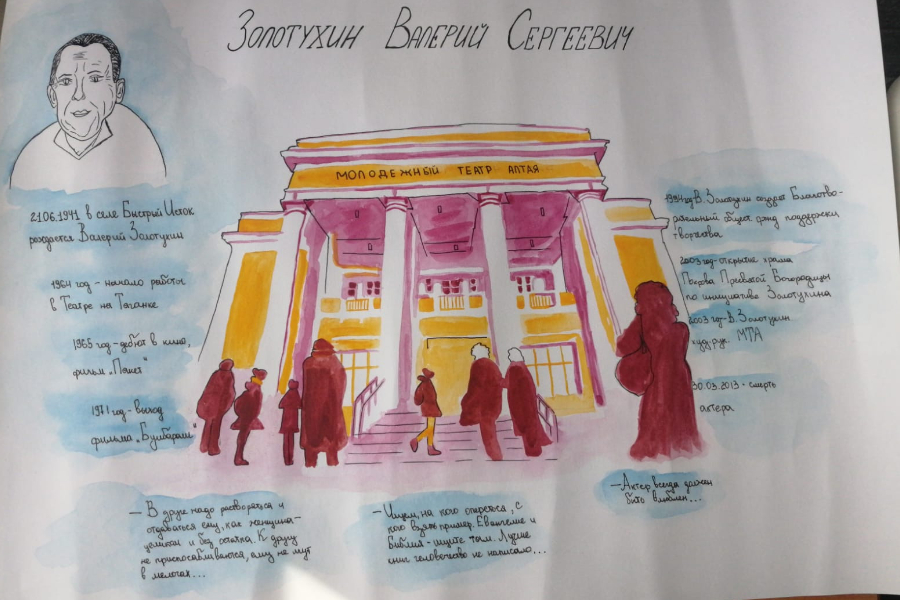 Золотухин Валерий Сергеевич
МОЛОДЕЖНЫЙ ТЕАТР АЛТАЯ
21.06.1941 в селе Быстрый Исток
рождается Валерий Золотухин
1964 год - начало работы
в Театре на Таганке
1965 год - дебют в кино,
фильм „Пакет"
1971 год - выход
фильма „Бумбараш"
В. Золотухин создал Благотво-
рительный фонд поддержки
творчества
2003 год - открытие храма
Покрова Богородицы
по инициативе Золотухина
2003 год - В. Золотухин
худ. рук. МТА
30.03.2013 - смерть
актера
— В друге надо растворяться и
отдаваться ему, как женщина -
целиком и без остатка. К другу
не приспосабливаются, ему не лгут
в мелочах...
— Ищем, на кого опереться, с
кого взять пример. Евангелие и
Библия - ищите там. Лучше
книг человечество не написало...
— Актер всегда должен
быть влюблен...